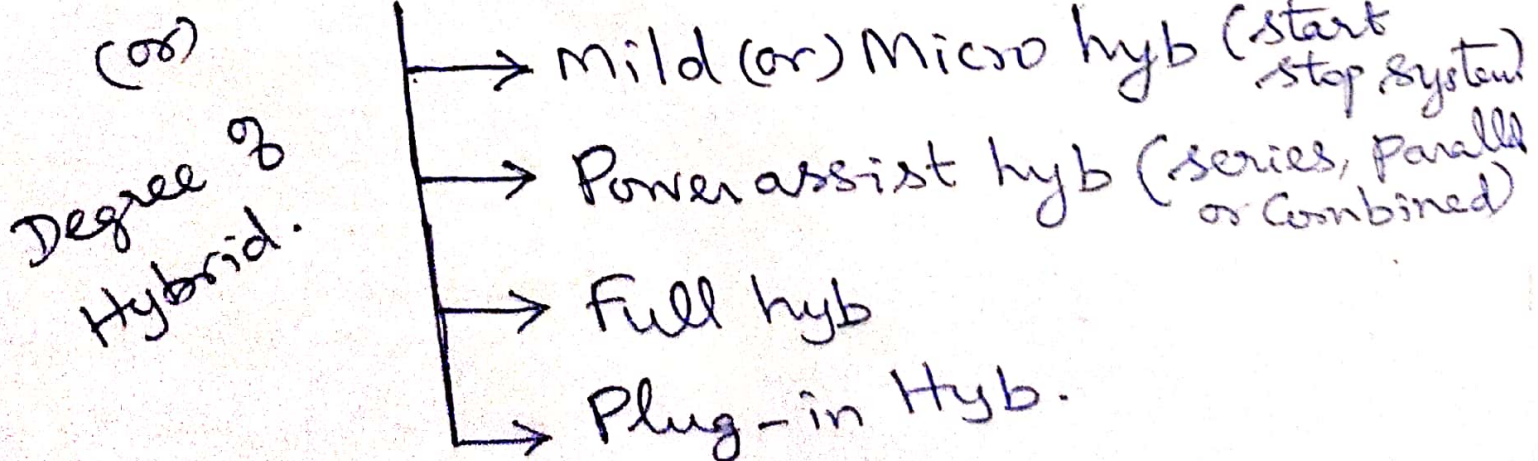 (or)
Degree of
Hybrid.
→ Mild (or) Micro hyb (start
stop system)
→ Power assist hyb (series, parallel
or Combined)
→ Full hyb
→ Plug-in Hyb.